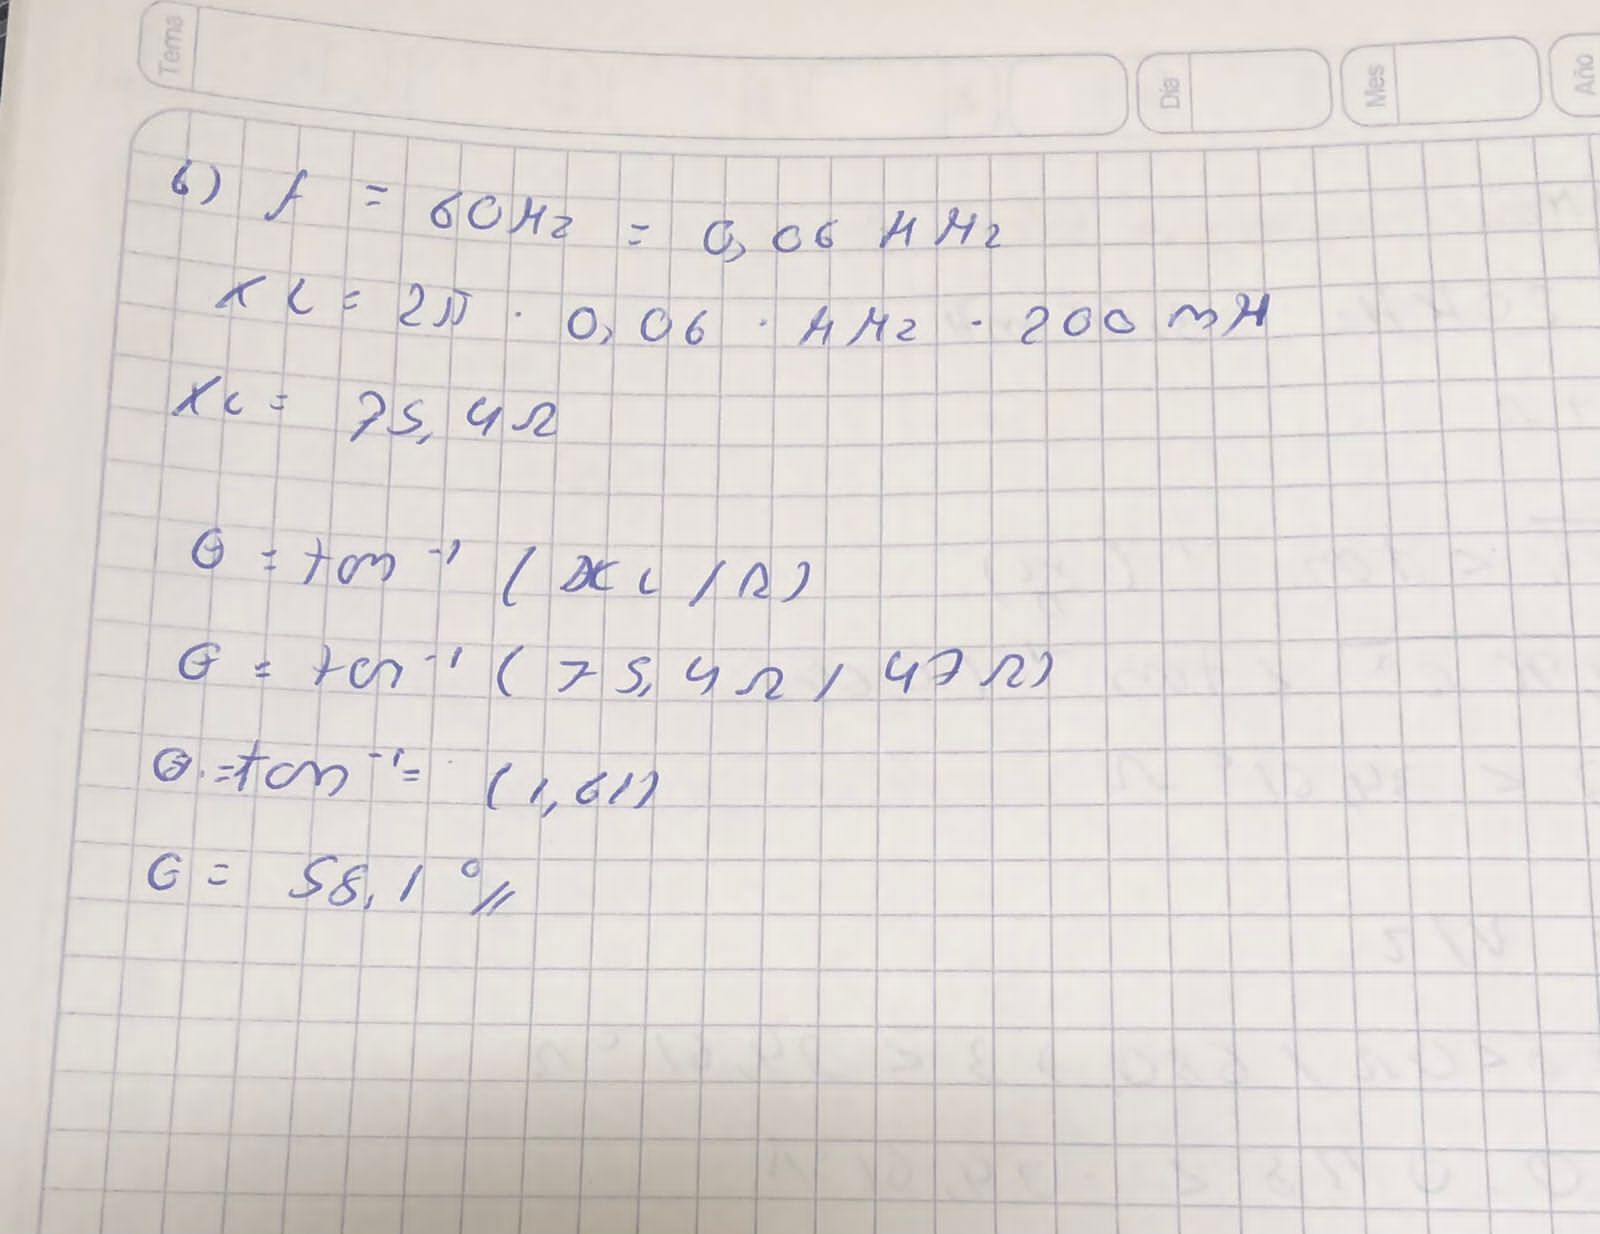 Tema
Día
Mes
Año
6) f = 60Hz = 0,06 KHz
XL = 2π · 0,06 · KHz · 200 mH
XL = 75,4Ω
θ = tan⁻¹ (XL / R)
θ = tan⁻¹ (75,4Ω / 47Ω)
θ = tan⁻¹ = (1,61)
θ = 58,1°//